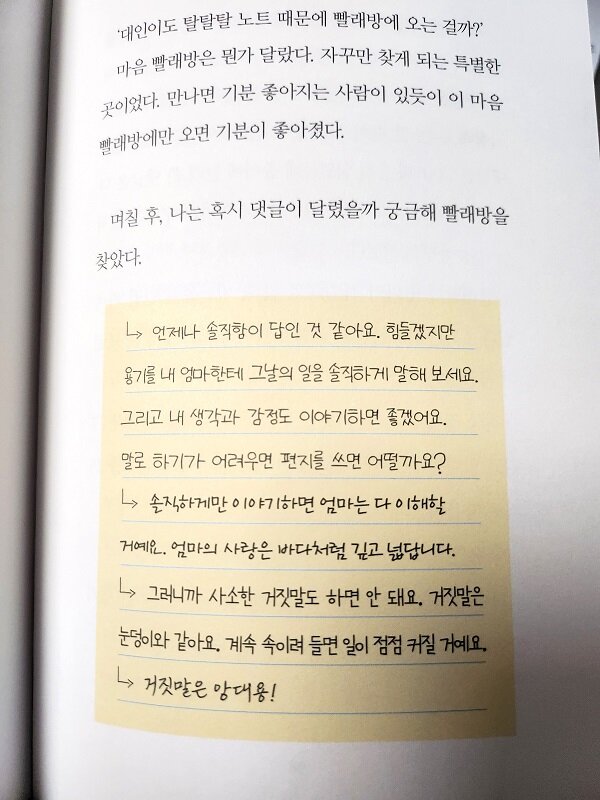 ‘대인이도 탈탈탈 노트 때문에 빨래방에 오는 걸까?’
마음 빨래방은 뭔가 달랐다. 자꾸만 찾게 되는 특별한
곳이었다. 만나면 기분 좋아지는 사람이 있듯이 이 마음
빨래방에만 오면 기분이 좋아졌다.
며칠 후, 나는 혹시 댓글이 달렸을까 궁금해 빨래방을
찾았다.
↳ 언제나 솔직함이 답인 것 같아요. 힘들겠지만
용기를 내 엄마한테 그날의 일을 솔직하게 말해 보세요.
그리고 내 생각과 감정도 이야기하면 좋겠어요.
말로 하기가 어려우면 편지를 쓰면 어떨까요?
↳ 솔직하게만 이야기하면 엄마는 다 이해할
거예요. 엄마의 사랑은 바다처럼 깊고 넓답니다.
↳ 그러니까 사소한 거짓말도 하면 안 돼요. 거짓말은
눈덩이와 같아요. 계속 속이려 들면 일이 점점 커질 거예요.
↳ 거짓말은 앙대용!